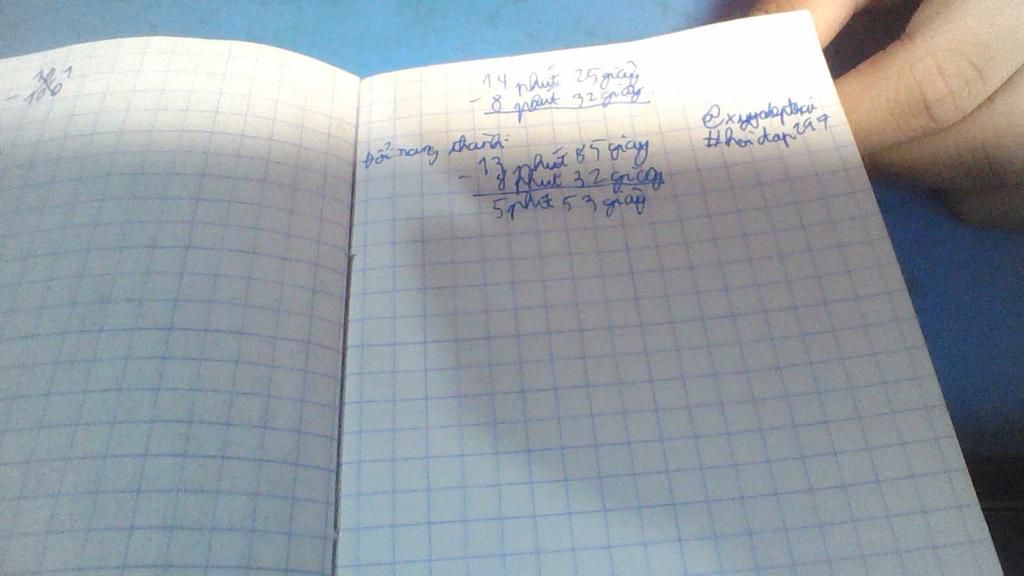 14 phút 25 giây
- 8 phút 32 giây
Đổi sang thành:
13 phút 85 giây
- 8 phút 32 giây
5 phút 53 giây
#hoidap247